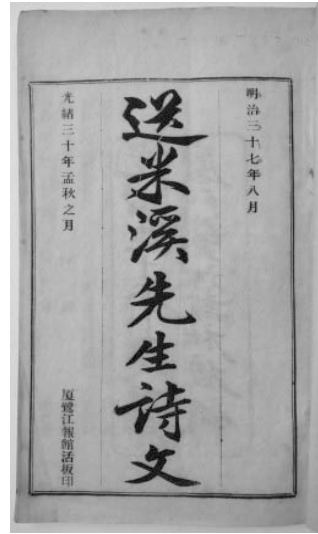 明治三十七年八月
送米溪先生詩文
光緒三十年孟秋之月
厦鷺江報館活板印